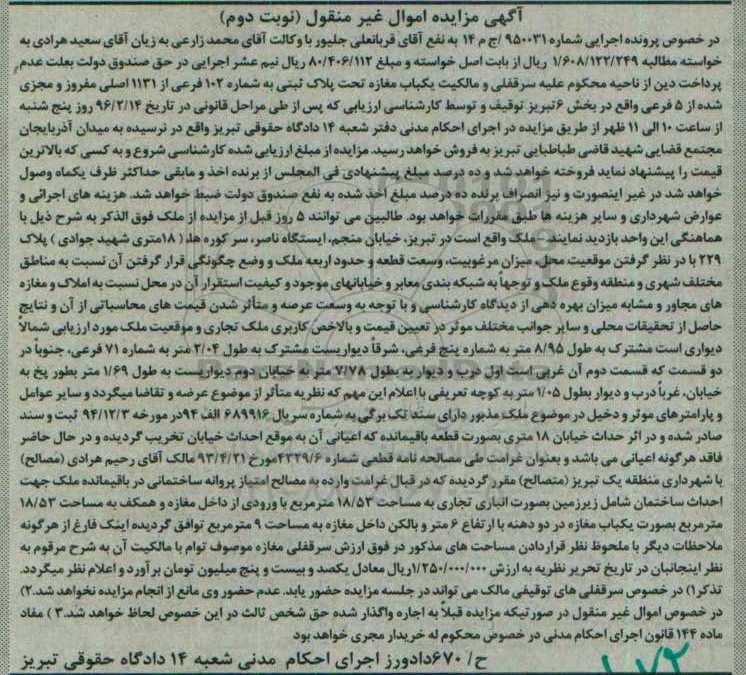 آگهی مزایده اموال غیر منقول (نوبت دوم)
در خصوص پرونده اجرایی شماره ۹۵۰۰۳۱ /ج م ۱۴ به نفع آقای قربانعلی جلیور با وکالت آقای محمد زارعی به زیان آقای سعید هرادی به
خواسته مطالبه ۱/۶۰۸/۱۲۲/۲۴۹ ریال از بابت اصل خواسته و مبلغ ۸۰/۴۰۶/۱۱۲ ریال نیم عشر اجرایی در حق صندوق دولت بعلت عدم
پرداخت دین از ناحیه محکوم علیه سرقفلی و مالکیت یکباب مغازه تحت پلاک ثبتی به شماره ۱۰۲ فرعی از ۱۱۳۱ اصلی مفروز و مجزی
شده از ۵ فرعی واقع در بخش ۶تبریز توقیف و توسط کارشناسی ارزیابی که پس از طی مراحل قانونی در تاریخ ۹۶/۲/۱۴ روز پنج شنبه
از ساعت ۱۰ الی ۱۱ ظهر از طریق مزایده در اجرای احکام مدنی دفتر شعبه ۱۴ دادگاه حقوقی تبریز واقع در نرسیده به میدان آذربایجان
مجتمع قضایی شهید قاضی طباطبایی تبریز به فروش خواهد رسید. مزایده از مبلغ ارزیابی شده کارشناسی شروع و به کسی که بالاترین
قیمت را پیشنهاد نماید فروخته خواهد شد و ده درصد مبلغ پیشنهادی فی المجلس از برنده اخذ و مابقی حداکثر ظرف یکماه وصول
خواهد شد در غیر اینصورت و نیز انصراف برنده ده درصد مبلغ اخذ شده به نفع صندوق دولت ضبط خواهد شد. هزینه های اجرائی و
عوارض شهرداری و سایر هزینه ها طبق مقررات خواهد بود. طالبین می توانند ۵ روز قبل از مزایده از ملک فوق الذکر به شرح ذیل با
هماهنگی این واحد بازدید نمایند. - ملک واقع است در تبریز، خیابان منجم، ایستگاه ناصر، سر کوره ها، ( ۱۸متری شهید جوادی ) پلاک
۲۲۹ با در نظر گرفتن موقعیت محل، میزان مرغوبیت، وسعت قطعه و حدود اربعه ملک و وضع چگونگی قرار گرفتن آن نسبت به مناطق
مختلف شهری و منطقه وقوع ملک و توجهاً به شبکه بندی معابر و خیابانهای موجود و کیفیت استقرار آن در محل نسبت به املاک و مغازه
های مجاور و مشابه میزان بهره دهی از دیدگاه کارشناسی و با توجه به وسعت عرصه و متأثر شدن قیمت های محاسباتی از آن و نتایج
حاصل از تحقیقات محلی و سایر جوانب مختلف موثر در تعیین قیمت و بالاخص کاربری ملک تجاری و موقعیت ملک مورد ارزیابی شمالاً
دیواری است مشترک به طول ۸/۹۵ متر به شماره پنج فرعی، شرقاً دیواریست مشترک به طول ۲/۰۴ متر به شماره ۷۱ فرعی، جنوباً در
دو قسمت که قسمت دوم آن غربی است اول درب و دیوار به طول ۷/۷۸ متر به خیابان دوم دیواریست به طول ۱/۶۹ متر بطور پخ به
خیابان، غرباً درب و دیوار بطول ۱/۰۵ متر به کوچه تعریفی با اعلام این مهم که نظریه متأثر از موضوع عرضه و تقاضا میگردد و سایر عوامل
و پارامترهای موثر و دخیل در موضوع ملک مذبور دارای سند تک برگی به شماره سریال ۶۸۹۹۱۶ الف ۹۴ در مورخه ۹۴/۱۲/۳ ثبت و سند
صادر شده و در اثر حداث خیابان ۱۸ متری بصورت قطعه باقیمانده که اعیانی آن به موقع احداث خیابان تخریب گردیده و در حال حاضر
فاقد هرگونه اعیانی می باشد و بعنوان غرامت طی مصالحه نامه قطعی شماره ۴۳۲۹/۶مورخ ۹۳/۴/۲۱ مالک آقای رحیم هرادی (مصالح)
با شهرداری منطقه یک تبریز (متصالح) مقرر گردیده که در قبال غرامت وارده به مصالح امتیاز پروانه ساختمانی در باقیمانده ملک جهت
احداث ساختمان شامل زیرزمین بصورت انباری تجاری به مساحت ۱۸/۵۳ مترمربع با ورودی از داخل مغازه و همکف به مساحت ۱۸/۵۳
مترمربع بصورت یکباب مغازه در دو دهنه با ارتفاع ۶ متر و بالکن داخل مغازه به مساحت ۹ مترمربع توافق گردیده اینک فارغ از هرگونه
ملاحظات دیگر با ملحوظ نظر قراردادن مساحت های مذکور در فوق ارزش سرقفلی مغازه موصوف توام با مالکیت آن به شرح مرقوم به
نظر اینجانبان در تاریخ تحریر نظریه به ارزش ۱/۲۵۰/۰۰۰/۰۰۰ریال معادل یکصد و بیست و پنج میلیون تومان برآورد و اعلام نظر میگردد.
تذکر۱) در خصوص سرقفلی های توقیفی مالک می تواند در جلسه مزایده حضور یابد. عدم حضور وی مانع از انجام مزایده نخواهد شد.۲)
در خصوص اموال غیر منقول در صورتیکه مزایده قبلاً به اجاره واگذار شده حق شخص ثالث در این خصوص لحاظ خواهد شد.۳ ) مفاد
ماده ۱۴۴ قانون اجرای احکام مدنی در خصوص محکوم له خریدار مجری خواهد بود
ح/ ۶۷۰دادورز اجرای احکام مدنی شعبه ۱۴ دادگاه حقوقی تبریز